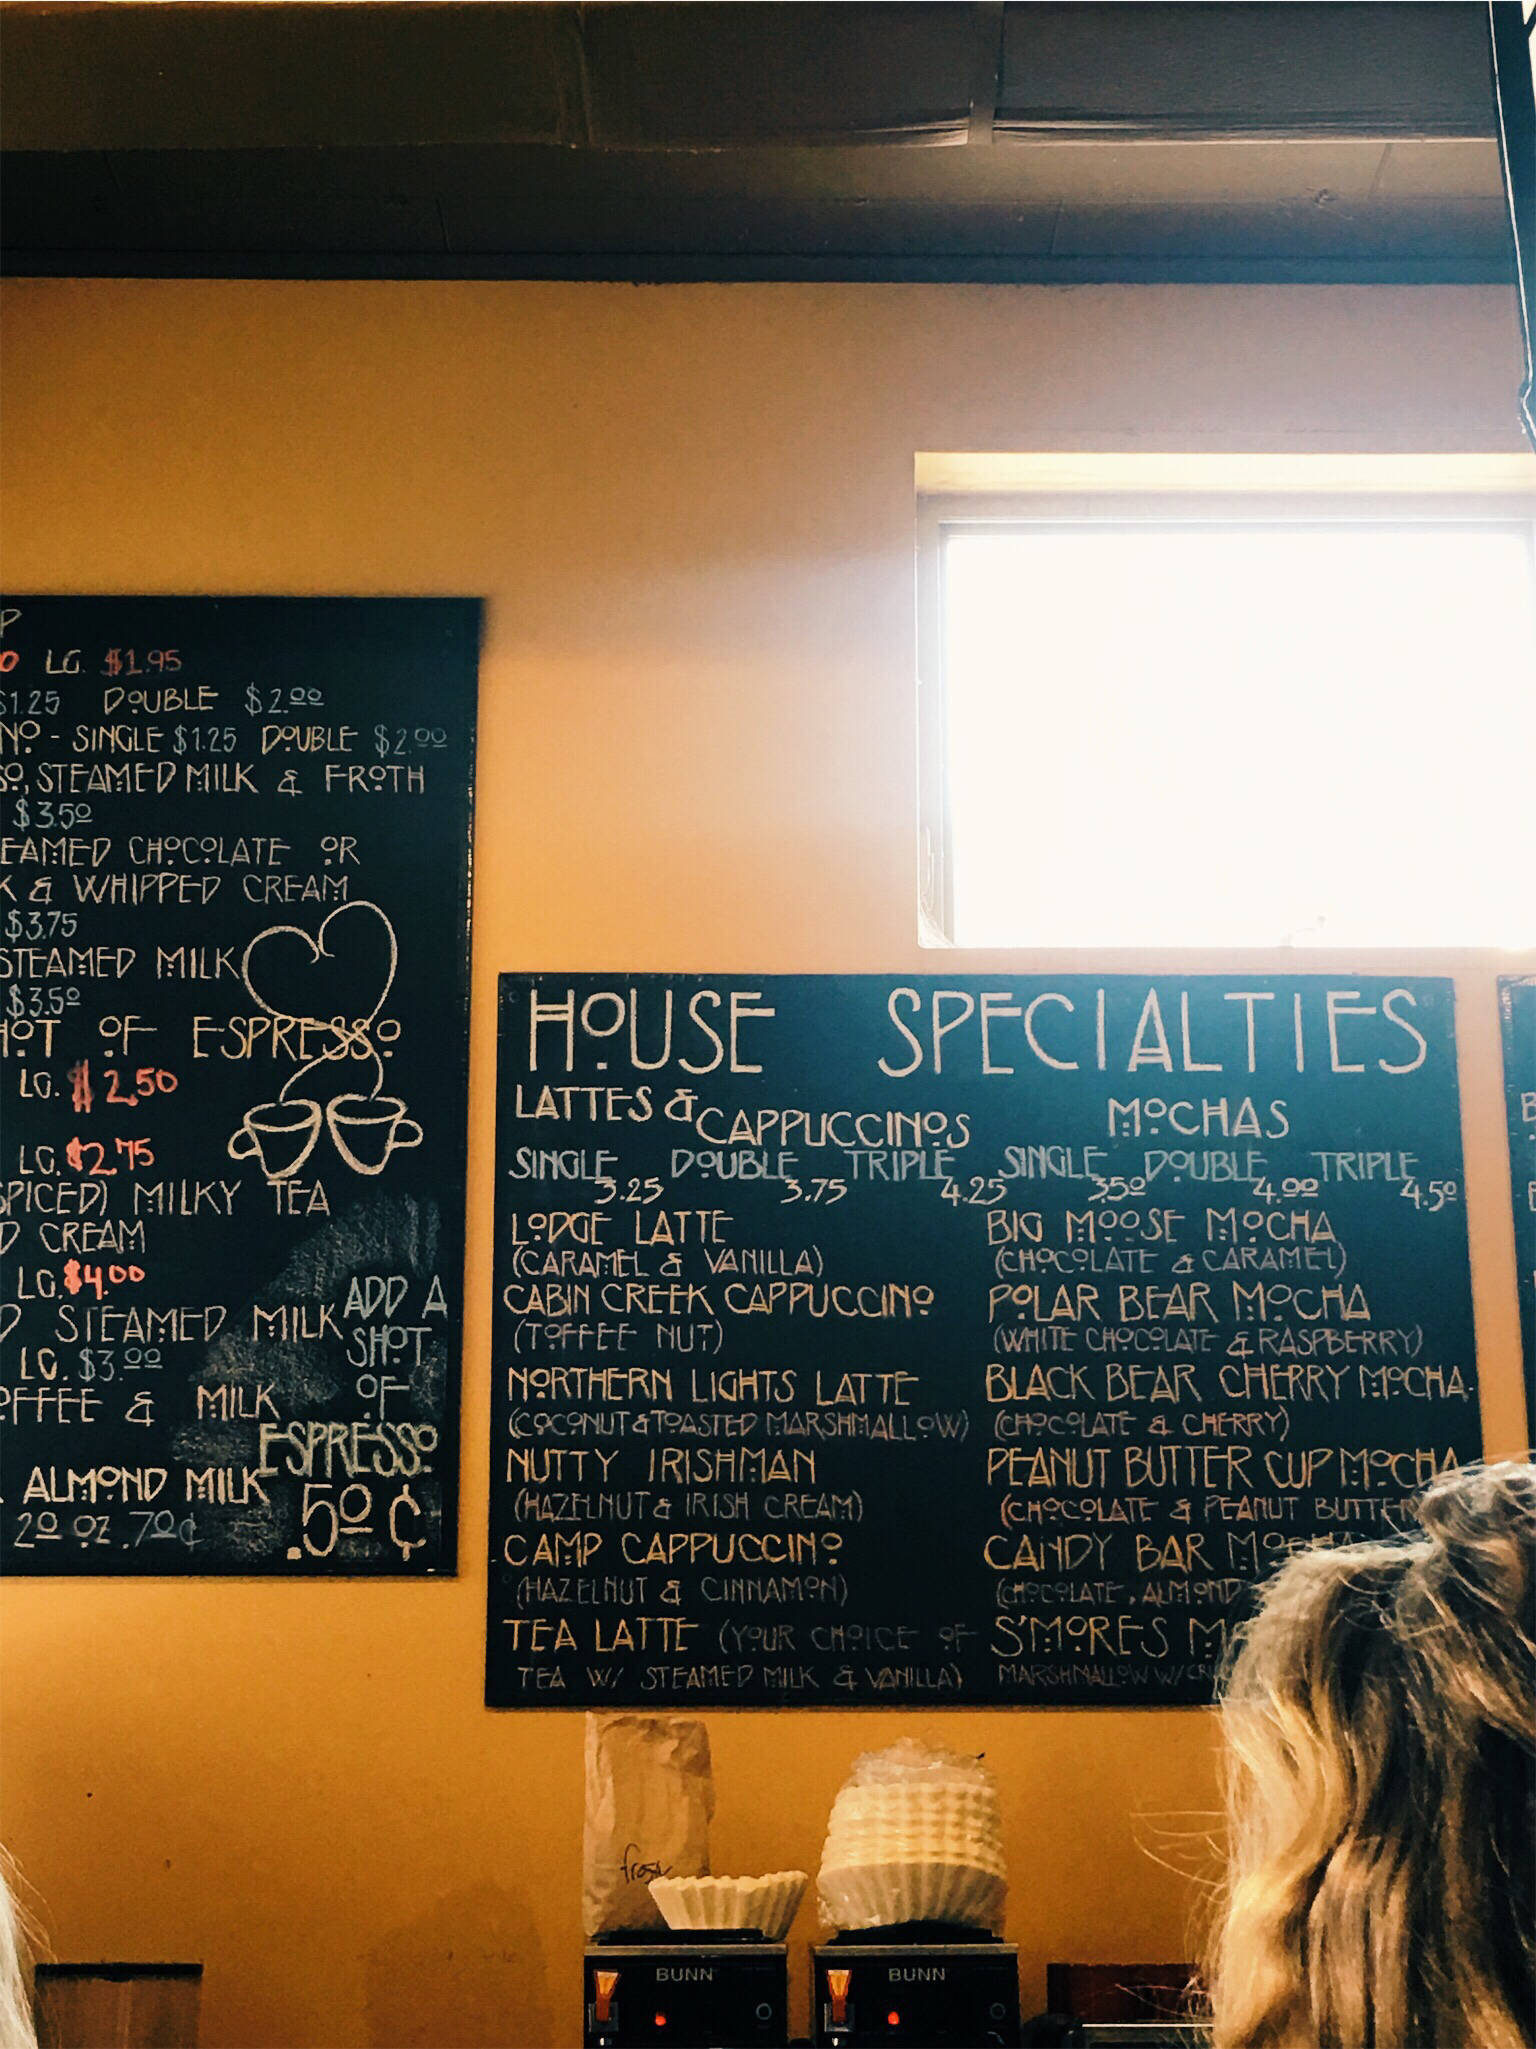 LG. $1.95
$1.25 DOUBLE $2.00
SINGLE $1.25 DOUBLE $2.00
STEAMED MILK & FROTH
$3.50
CHOCOLATE OR
& WHIPPED CREAM
$3.75
STEAMED MILK
$3.50
OF ESPRESSO
LG. $2.50
LG. $2.75
MILKY TEA
CREAM
LG. $4.00
STEAMED MILK
LG. $3.00
& MILK
ALMOND MILK
20 OZ .70¢
ADD A
SHOT
OF
ESPRESSO
.50 ¢
HOUSE SPECIALTIES
LATTES & CAPPUCCINOS
SINGLE 3.25 DOUBLE 3.75 TRIPLE 4.25
LODGE LATTE
(CARAMEL & VANILLA)
CABIN CREEK CAPPUCCINO
(TOFFEE NUT)
NORTHERN LIGHTS LATTE
(COCONUT & TOASTED MARSHMALLOW)
NUTTY IRISHMAN
(HAZELNUT & IRISH CREAM)
CAMP CAPPUCCINO
(HAZELNUT & CINNAMON)
TEA LATTE (YOUR CHOICE OF
TEA W/ STEAMED MILK & VANILLA)
MOCHAS
SINGLE 3.50 DOUBLE 4.00 TRIPLE 4.50
BIG MOOSE MOCHA
(CHOCOLATE & CARAMEL)
POLAR BEAR MOCHA
(WHITE CHOCOLATE & RASPBERRY)
BLACK BEAR CHERRY MOCHA
(CHOCOLATE & CHERRY)
PEANUT BUTTER CUP MOCHA
(CHOCOLATE & PEANUT BUTTER
CANDY BAR MOCHA
(CHOCOLATE, ALMOND
S'MORES
MARSHMALLOW W/
BUNN
BUNN